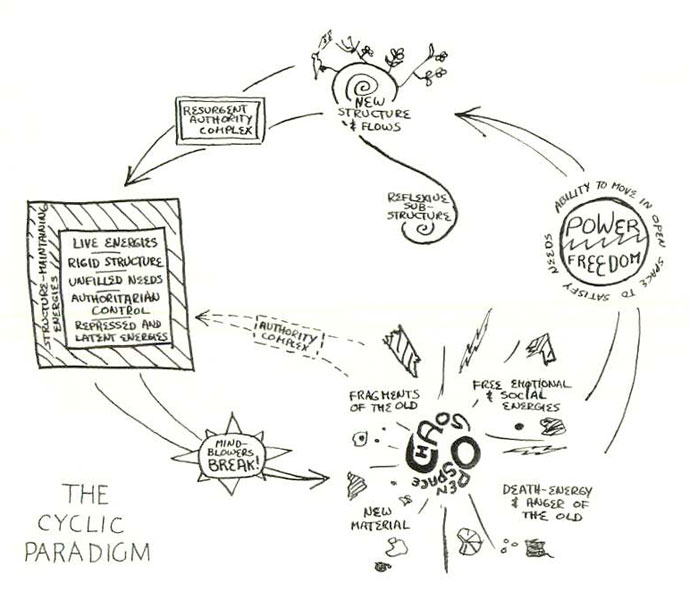 NEW
STRUCTURE
& FLOWS
RESURGENT
AUTHORITY
COMPLEX
REFLEXIVE
SUB-
STRUCTURE
ABILITY TO MOVE IN OPEN SPACE TO SATISFY NEEDS
POWER
FREEDOM
STRUCTURE-MAINTAINING
ENERGIES
LIVE ENERGIES
RIGID STRUCTURE
UNFILLED NEEDS
AUTHORITARIAN
CONTROL
REPRESSED AND
LATENT ENERGIES
AUTHORITY
COMPLEX
FRAGMENTS
OF THE OLD
FREE EMOTIONAL
& SOCIAL
ENERGIES
CHAOS
OPEN
SPACE
MIND-
BLOWERS
BREAK!
NEW
MATERIAL
DEATH-ENERGY
& ANGER OF
THE OLD
THE
CYCLIC
PARADIGM